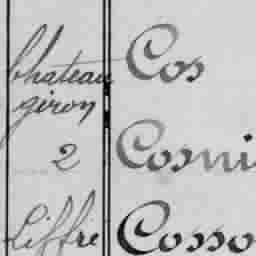 Chateau
giron
Cos
2
Cosni
Liffré
Cosso